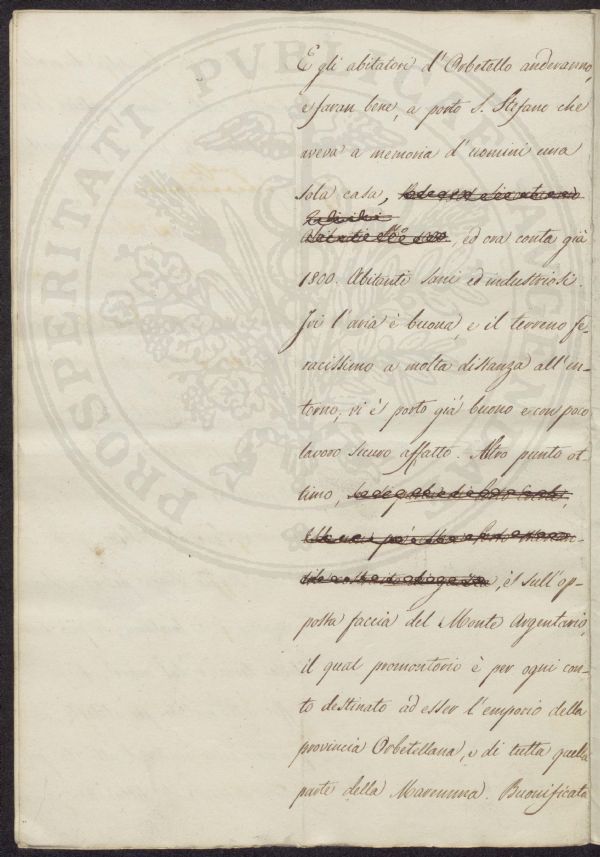 E gli abitatori d'Orbetello anderanno,
e faran bene, a porto S. Stefano che
aveva a memoria d'uomini una
sola casa,
, ed ora conta già
1800. Abitanti sani ed industriosi.
Ivi l'aria è buona, e il terreno fe-
racissimo a molta distanza all'in-
torno, vi è porto già buono e con poco
lavoro sicuro affatto. Altro punto ot-
timo,
, è sull'op-
posta faccia del Monte Argentario,
il qual promontorio è per ogni con-
to destinato ad esser l'emporio della
provincia Orbetellana, e di tutta quella
parte della Maremma. Buonificata
PROSPERITATI PVBLICAE